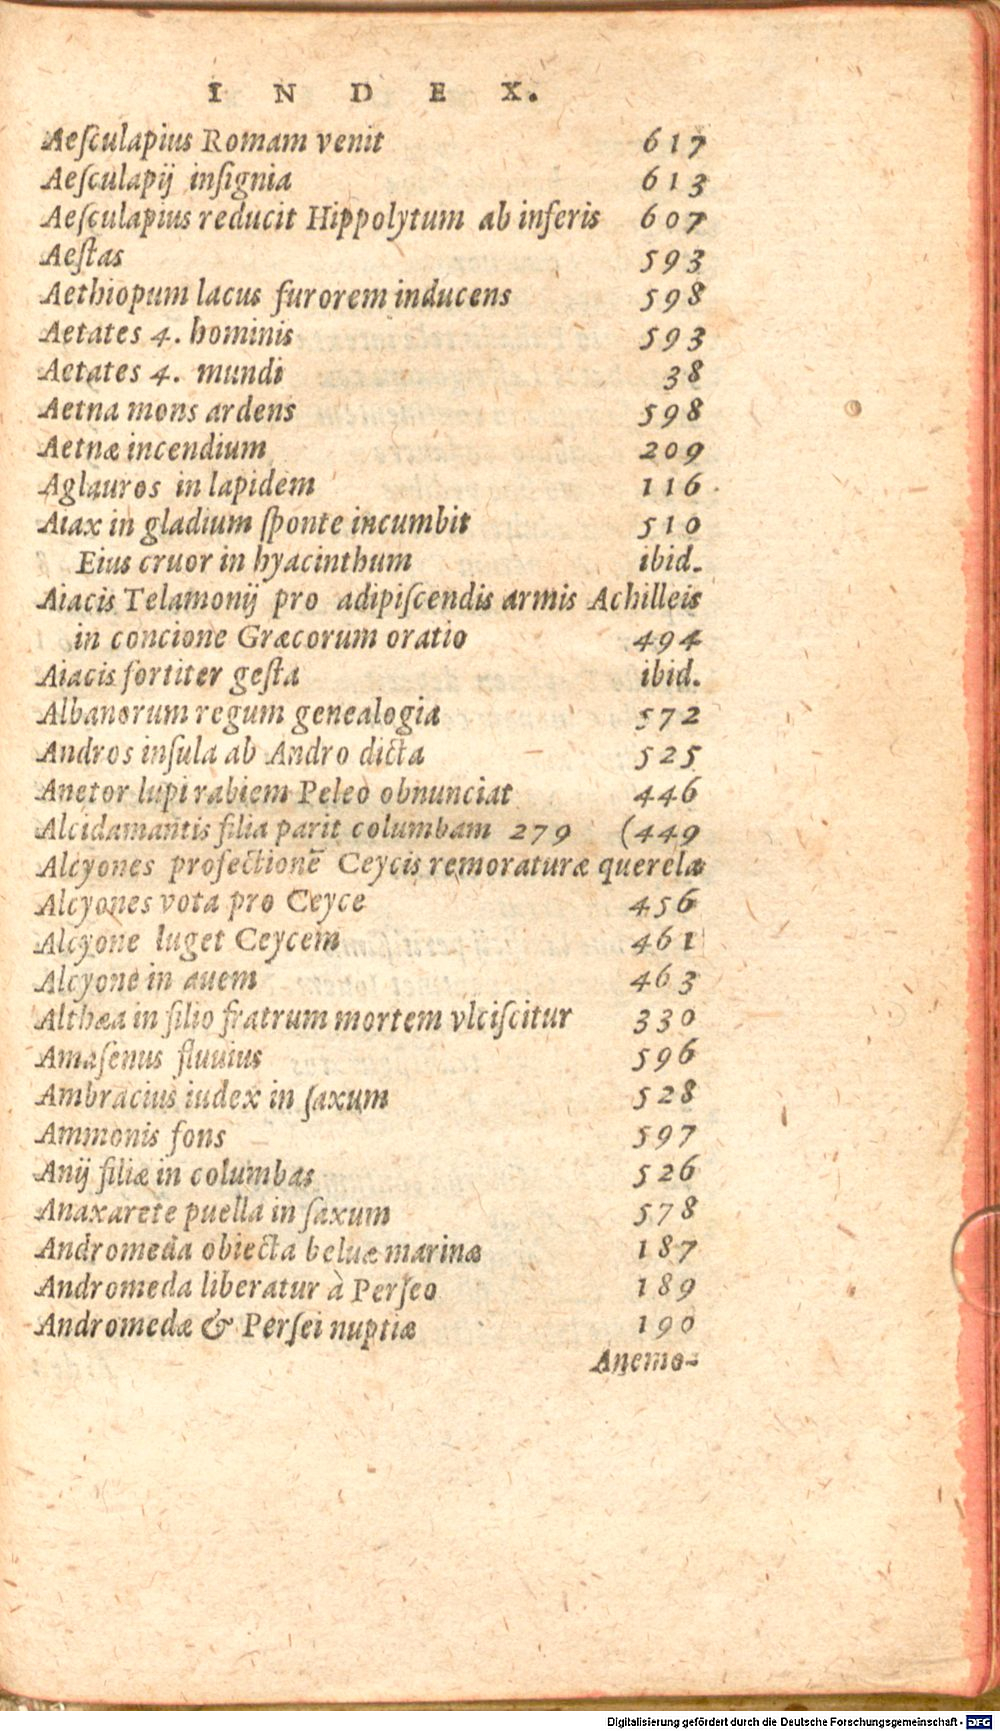 INDEX.
Aeſculapius Romam venit 617
Aeſculapij inſignia 613
Aeſculapius reducit Hippolytum ab inferis 607
Aeſtas 593
Aethiopum lacus furorem inducens 598
Aetates 4. hominis 593
Aetates 4. mundi 38
Aetna mons ardens 598
Aetnæ incendium 209
Aglauros in lapidem 116
Aiax in gladium ſponte incumbit 510
Eius cruor in hyacinthum ibid.
Aiacis Telamonij pro adipiſcendis armis Achilleis
in concione Græcorum oratio 494
Aiacis fortiter geſta ibid.
Albanorum regum genealogia 572
Andros inſula ab Andro dicta 525
Anetor lupi rabiem Peleo obnunciat 446
Alcidamantis filia parit columbam 279 (449
Alcyones profectionē Ceycis remoraturæ querelæ
Alcyones vota pro Ceyce 456
Alcyone luget Ceycem 461
Alcyone in auem 463
Althæa in filio fratrum mortem vlciſcitur 330
Amaſenus fluuius 596
Ambracius iudex in ſaxum 528
Ammonis fons 597
Anij filiæ in columbas 526
Anaxarete puella in ſaxum 578
Andromeda obiecta beluæ marinæ 187
Andromeda liberatur à Perſeo 189
Andromedæ & Perſei nuptiæ 190
Anemo-
Digitalisierung gefördert durch die Deutsche Forschungsgemeinschaft - DFG